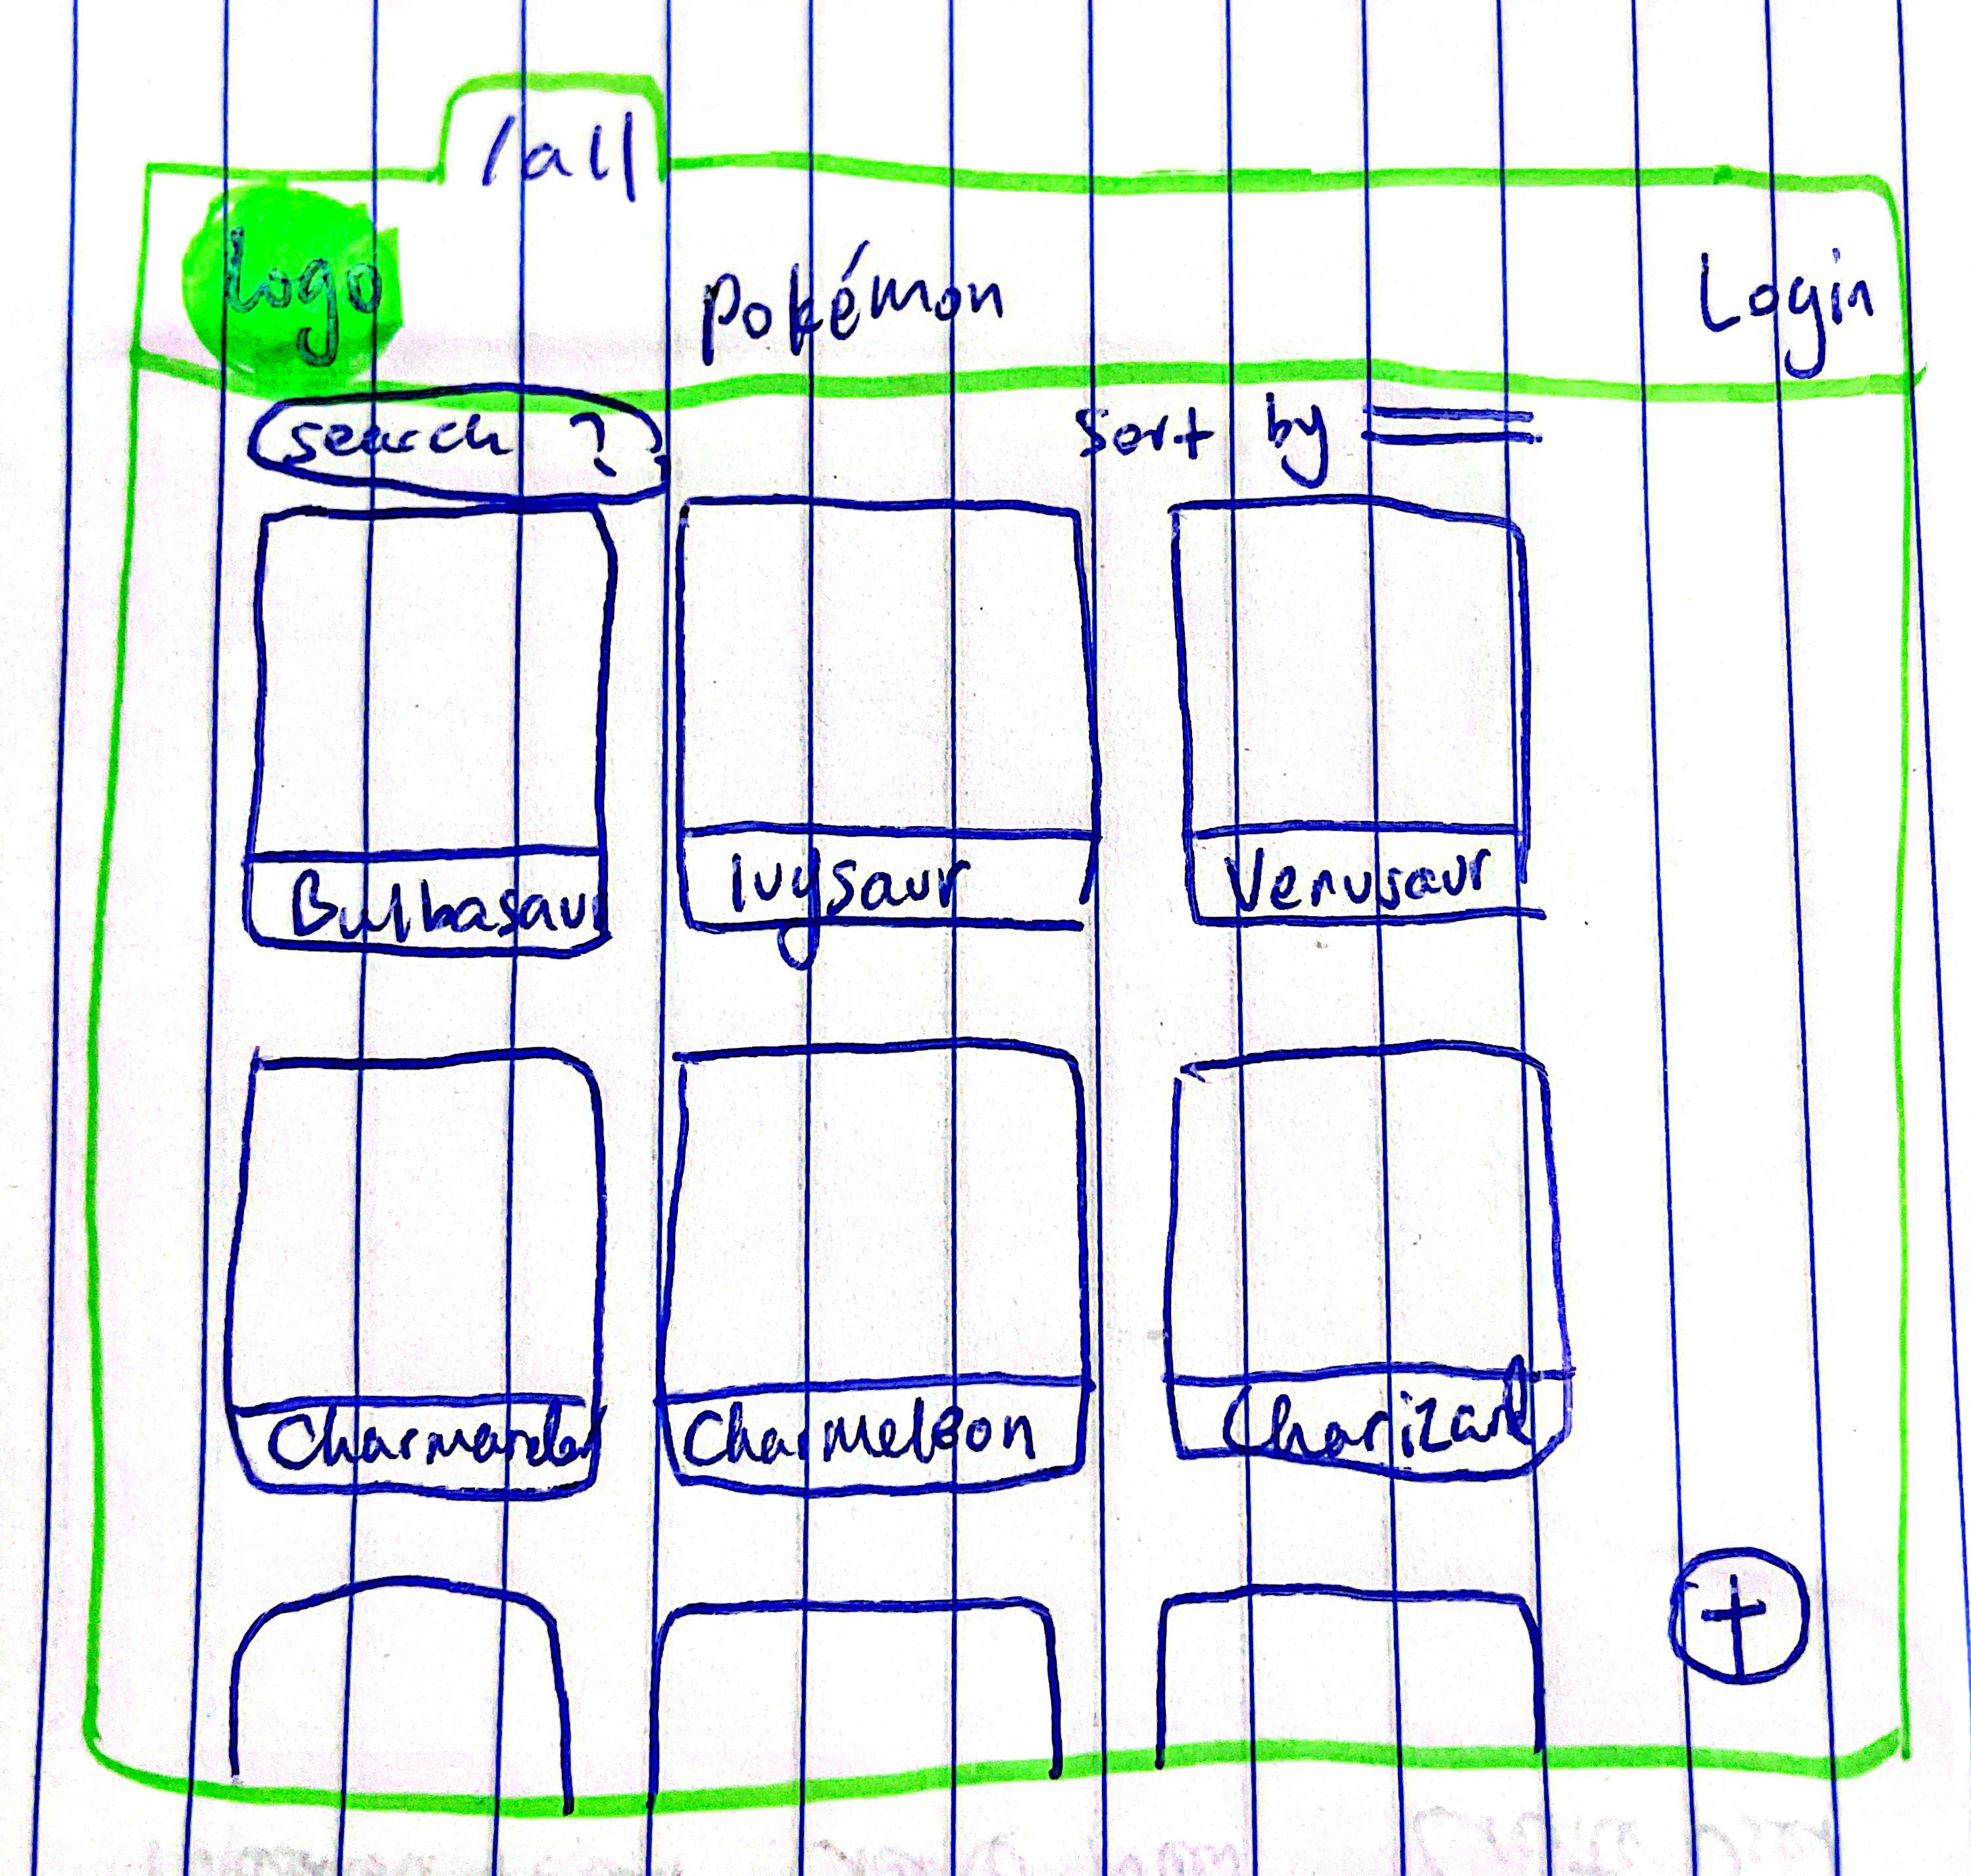 /all
Logo Pokémon Login
search ?
Sort by
Bulbasaur Ivysaur Venusaur
Charmander Charmeleon Charizard
+